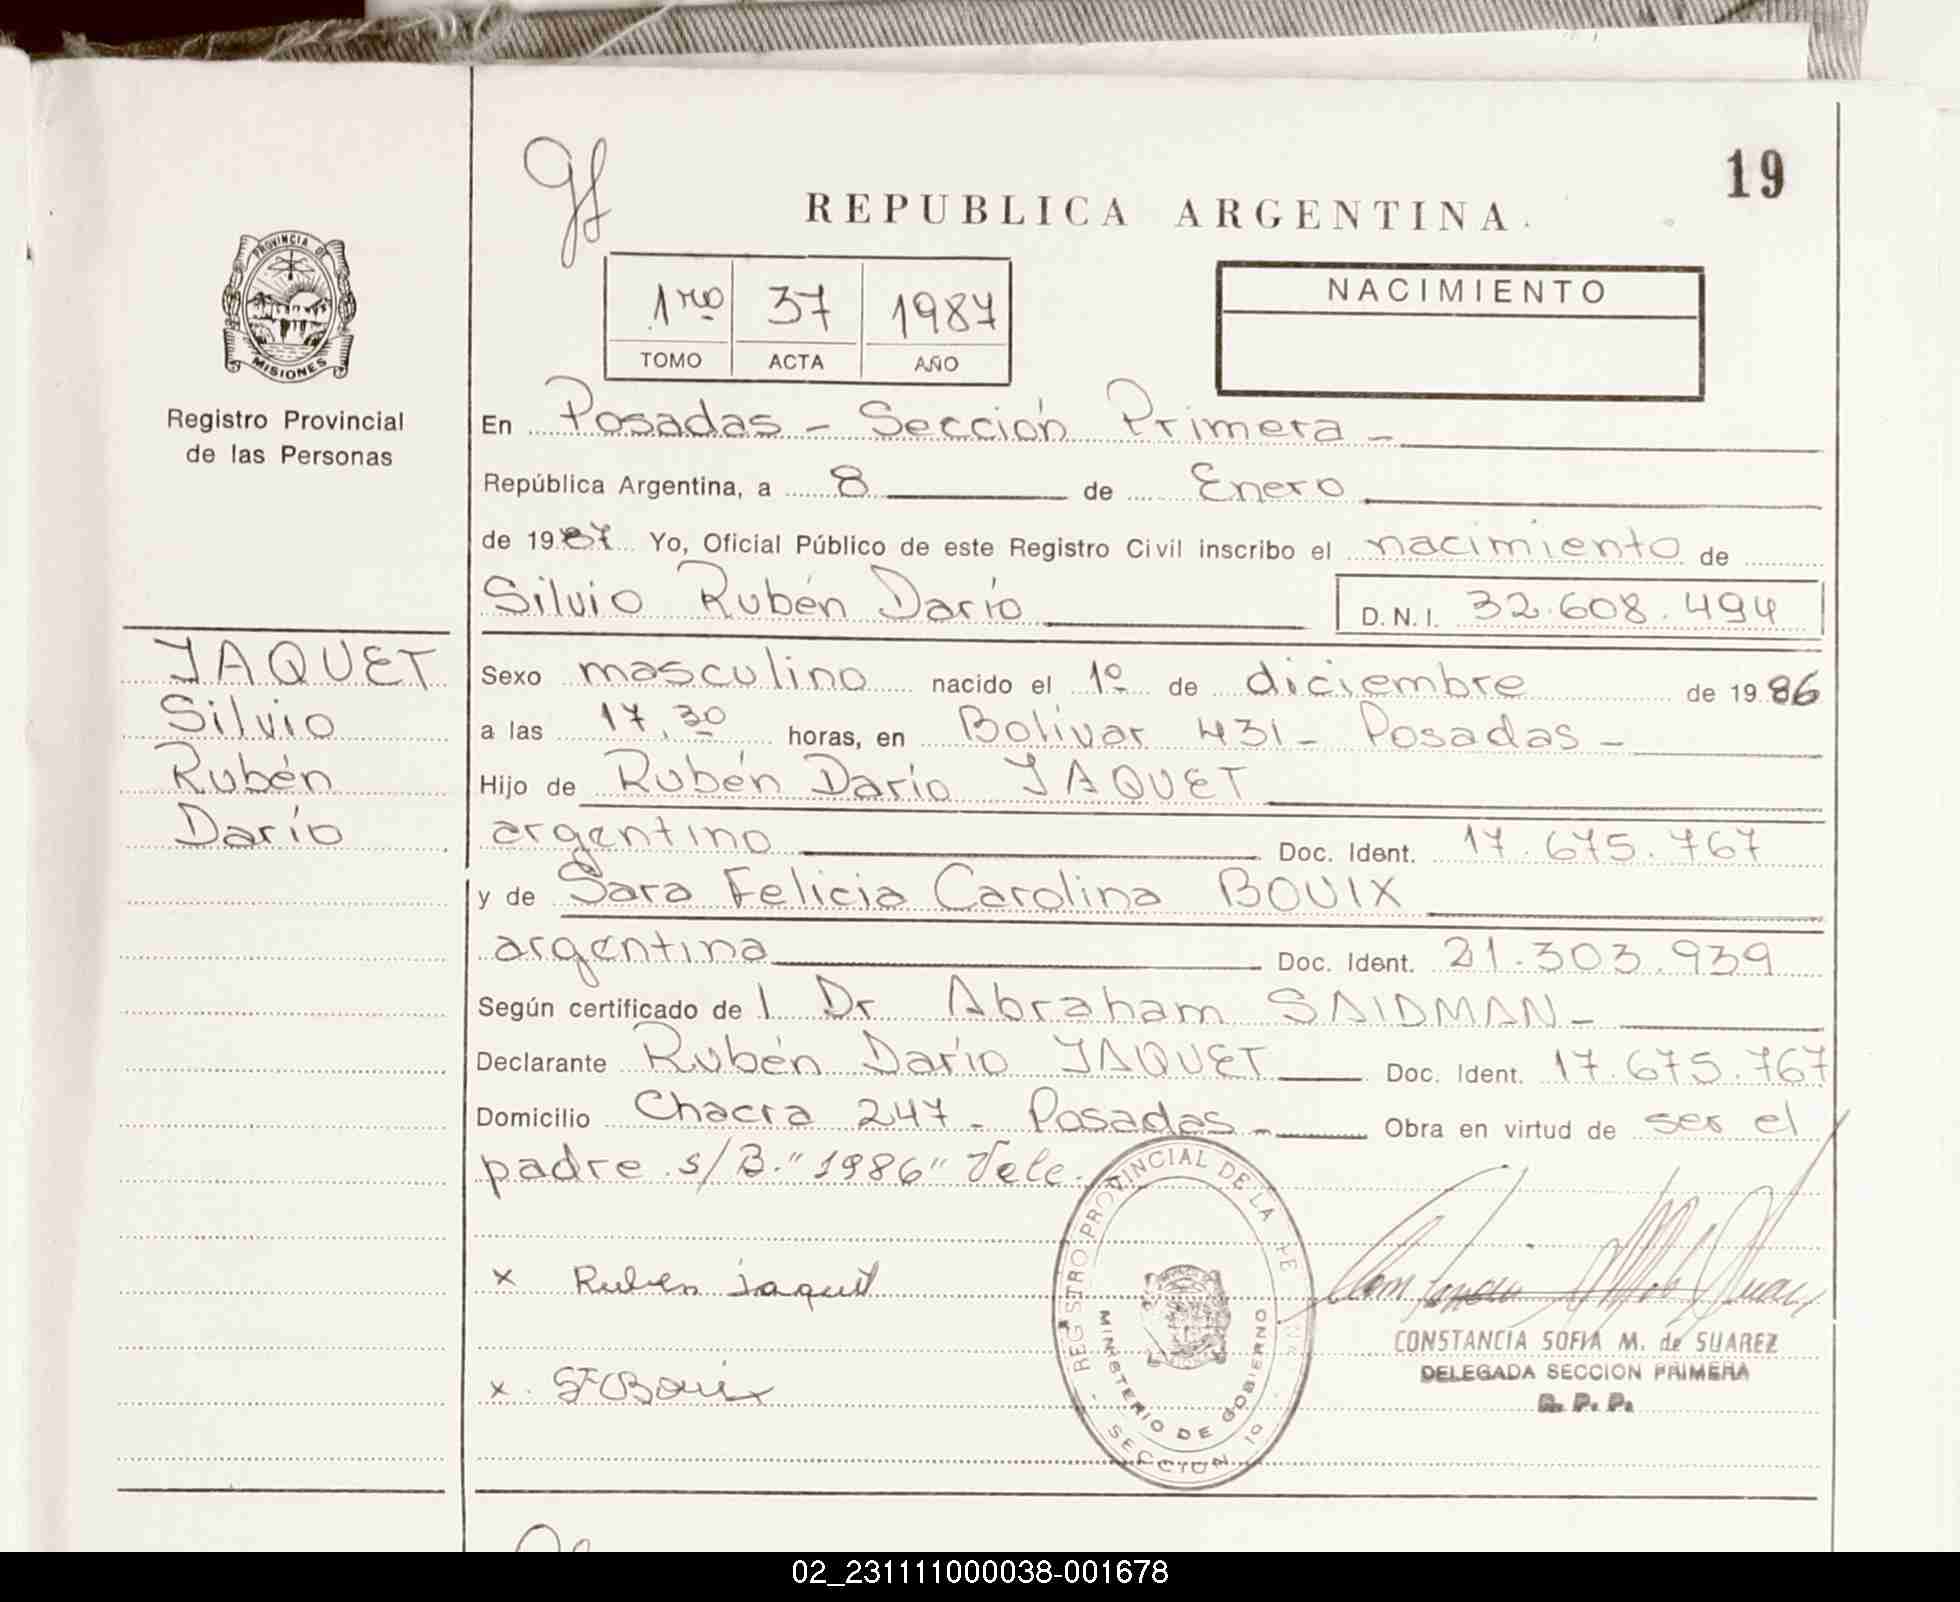 19
REPUBLICA ARGENTINA.
PROVINCIA DE
MISIONES
Registro Provincial
de las Personas
1ro 37 1987
TOMO ACTA AÑO
NACIMIENTO
En Posadas - Sección Primera -
República Argentina, a 8 de Enero
de 1987 Yo, Oficial Público de este Registro Civil inscribo el nacimiento de
Silvio Rubén Darío D.N.I. 32.608.494
JAQUET
Silvio
Rubén
Darío
Sexo masculino nacido el 1º de diciembre de 1986
a las 17,30 horas, en Bolívar 431 - Posadas -
Hijo de Rubén Darío JAQUET
argentino Doc. Ident. 17.675.767
y de Sara Felicia Carolina BOUIX
argentina Doc. Ident. 21.303.939
Según certificado de l Dr Abraham SAIDMAN -
Declarante Rubén Darío JAQUET Doc. Ident. 17.675.767
Domicilio Chacra 247 - Posadas - Obra en virtud de ser el
padre s/B."1986" Vele.
x Ruben jaquet
x. SFBouix
REGISTRO PROVINCIAL DE LA
MINISTERIO DE GOBIERNO
SECCION 1a
CONSTANCIA SOFIA M. de SUAREZ
DELEGADA SECCION PRIMERA
R. P. P.
02_231111000038-001678